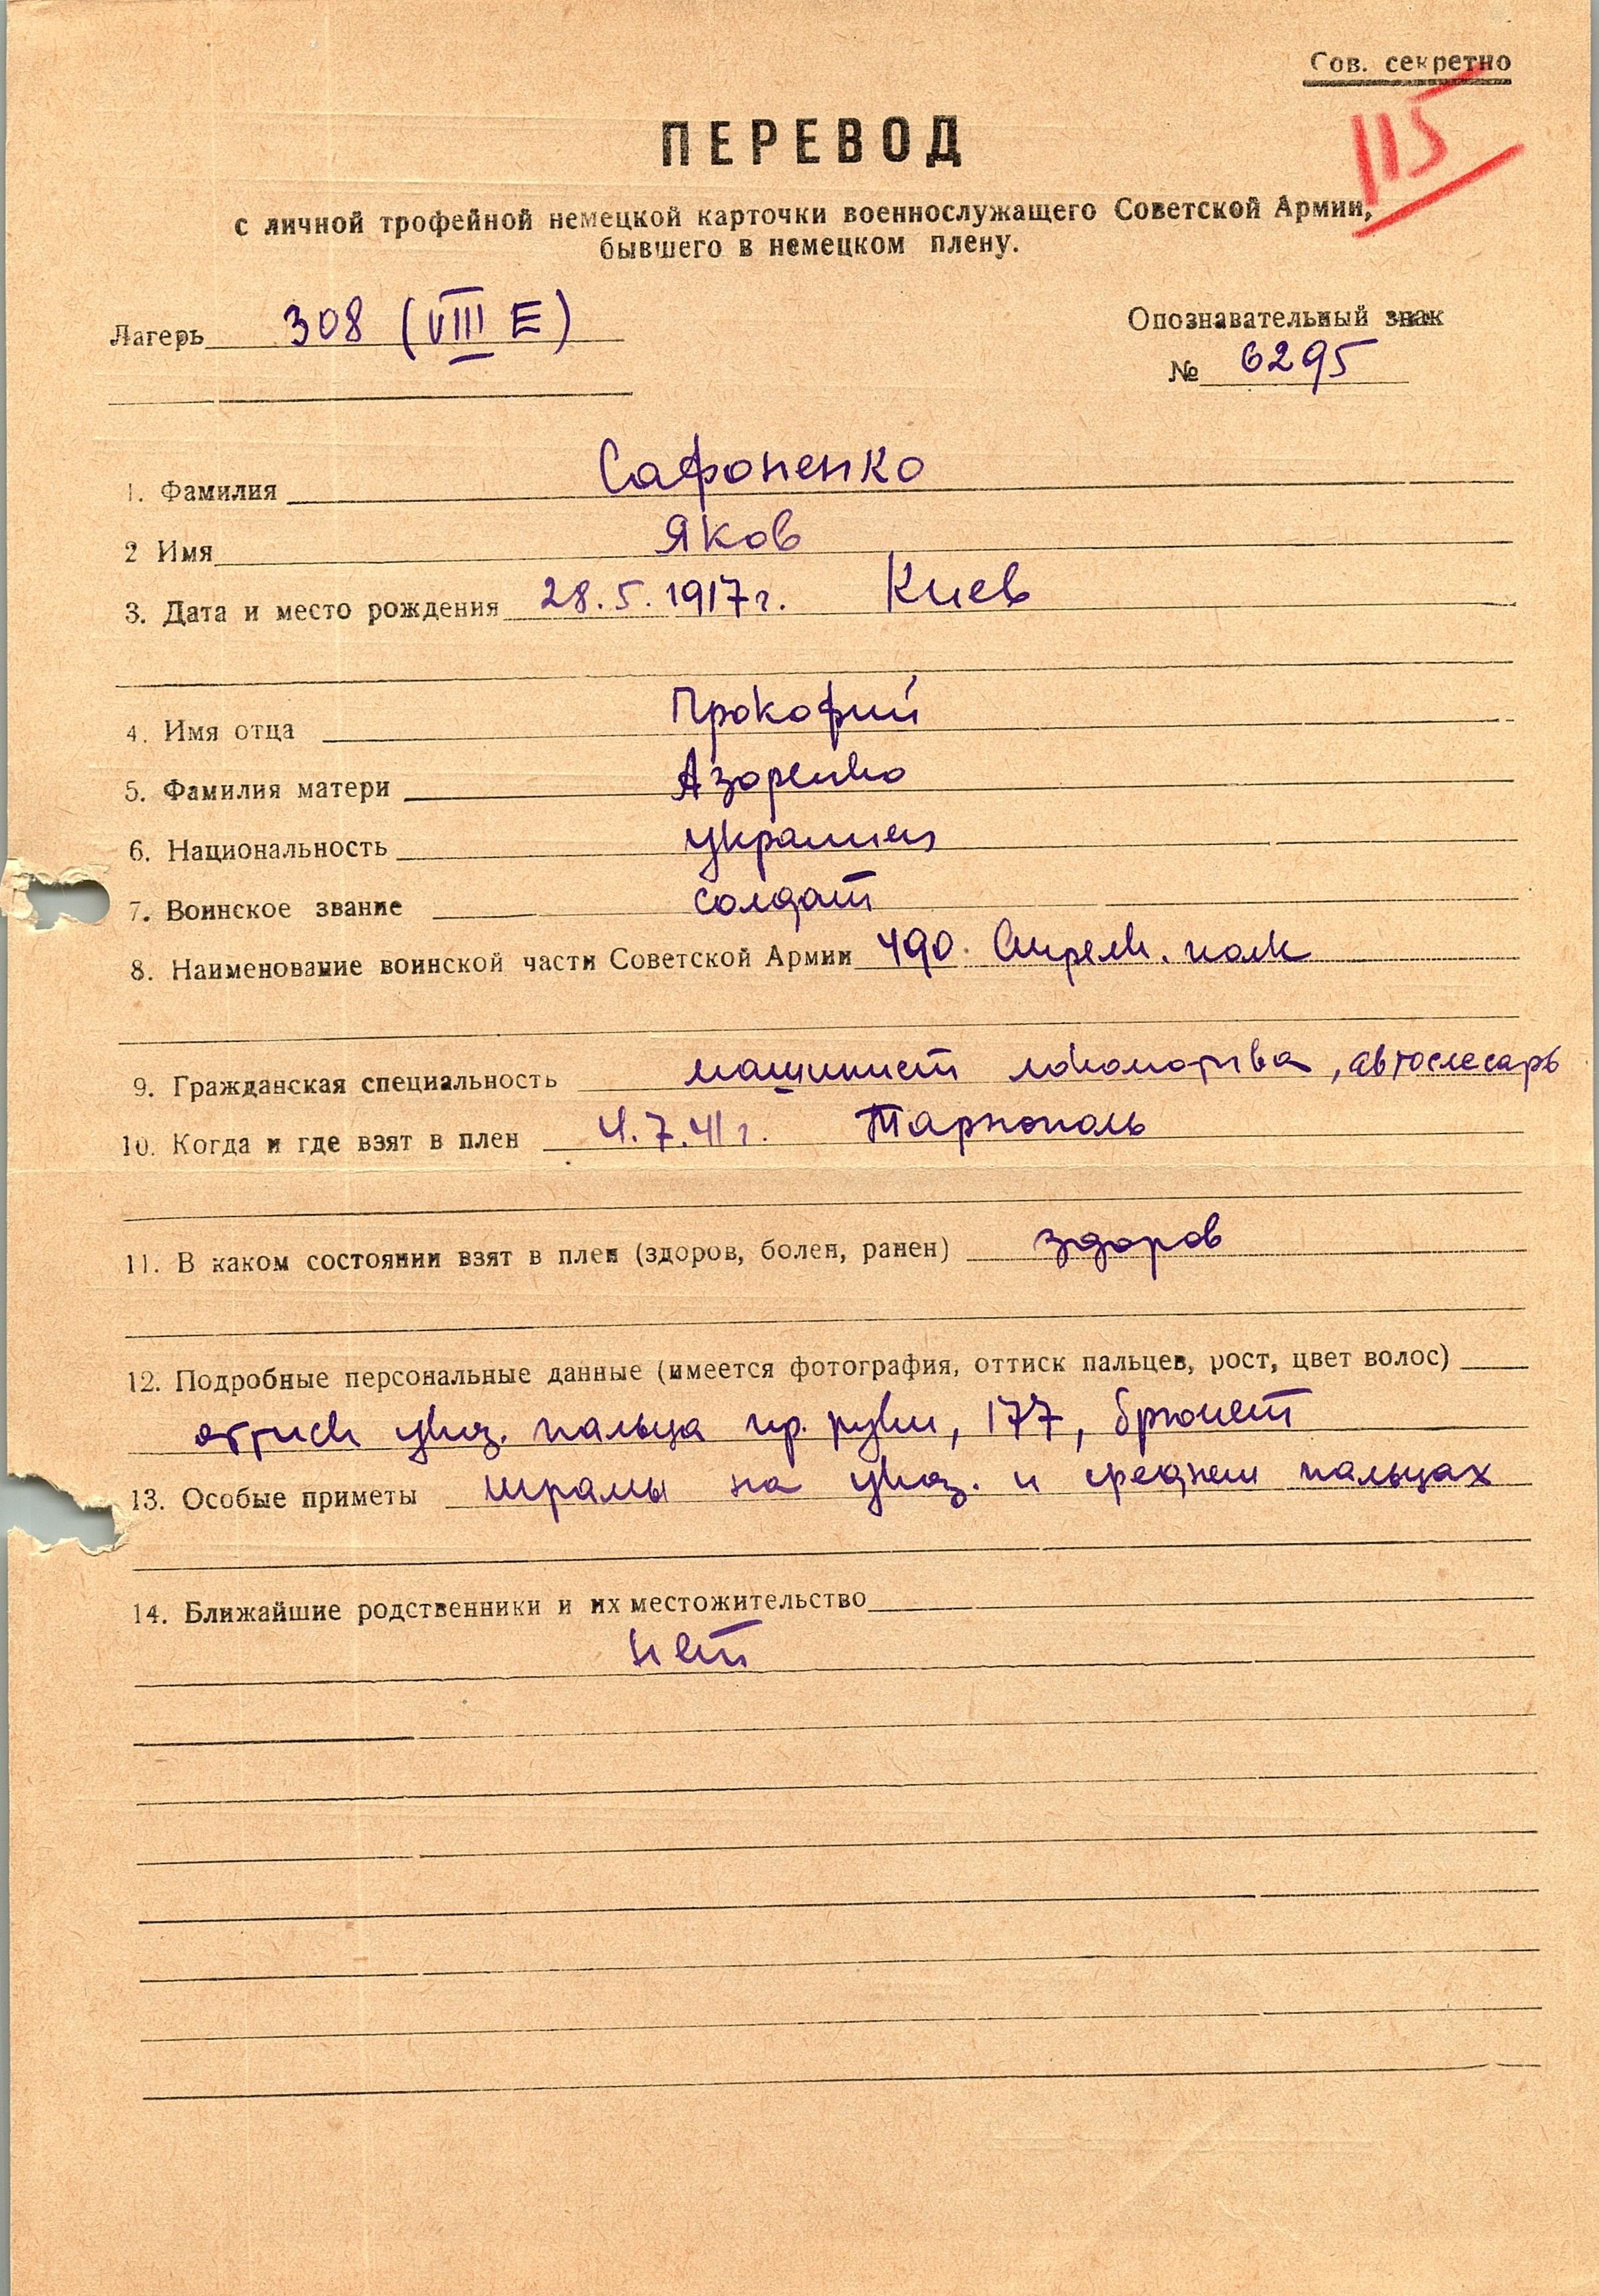 Сов. секретно
115
ПЕРЕВОД
с личной трофейной немецкой карточки военнослужащего Советской Армии,
бывшего в немецком плену.
Лагерь 308 (VIII E)
Опознавательный знак
№ 6295
1. Фамилия Сафоненко
2 Имя Яков
3. Дата и место рождения 28.5.1917г. Киев
4. Имя отца Прокофий
5. Фамилия матери Азаренко
6. Национальность украинец
7. Воинское звание солдат
8. Наименование воинской части Советской Армии 490. Стрелк. полк
9. Гражданская специальность машинист локомотива, автослесарь
10. Когда и где взят в плен 4.7.41г. Тарнополь
11. В каком состоянии взят в плен (здоров, болен, ранен) здоров
12. Подробные персональные данные (имеется фотография, оттиск пальцев, рост, цвет волос)
оттиск указ. пальца пр. руки, 177, брюнет
13. Особые приметы шрамы на указ. и среднем пальцах
14. Ближайшие родственники и их местожительство
нет